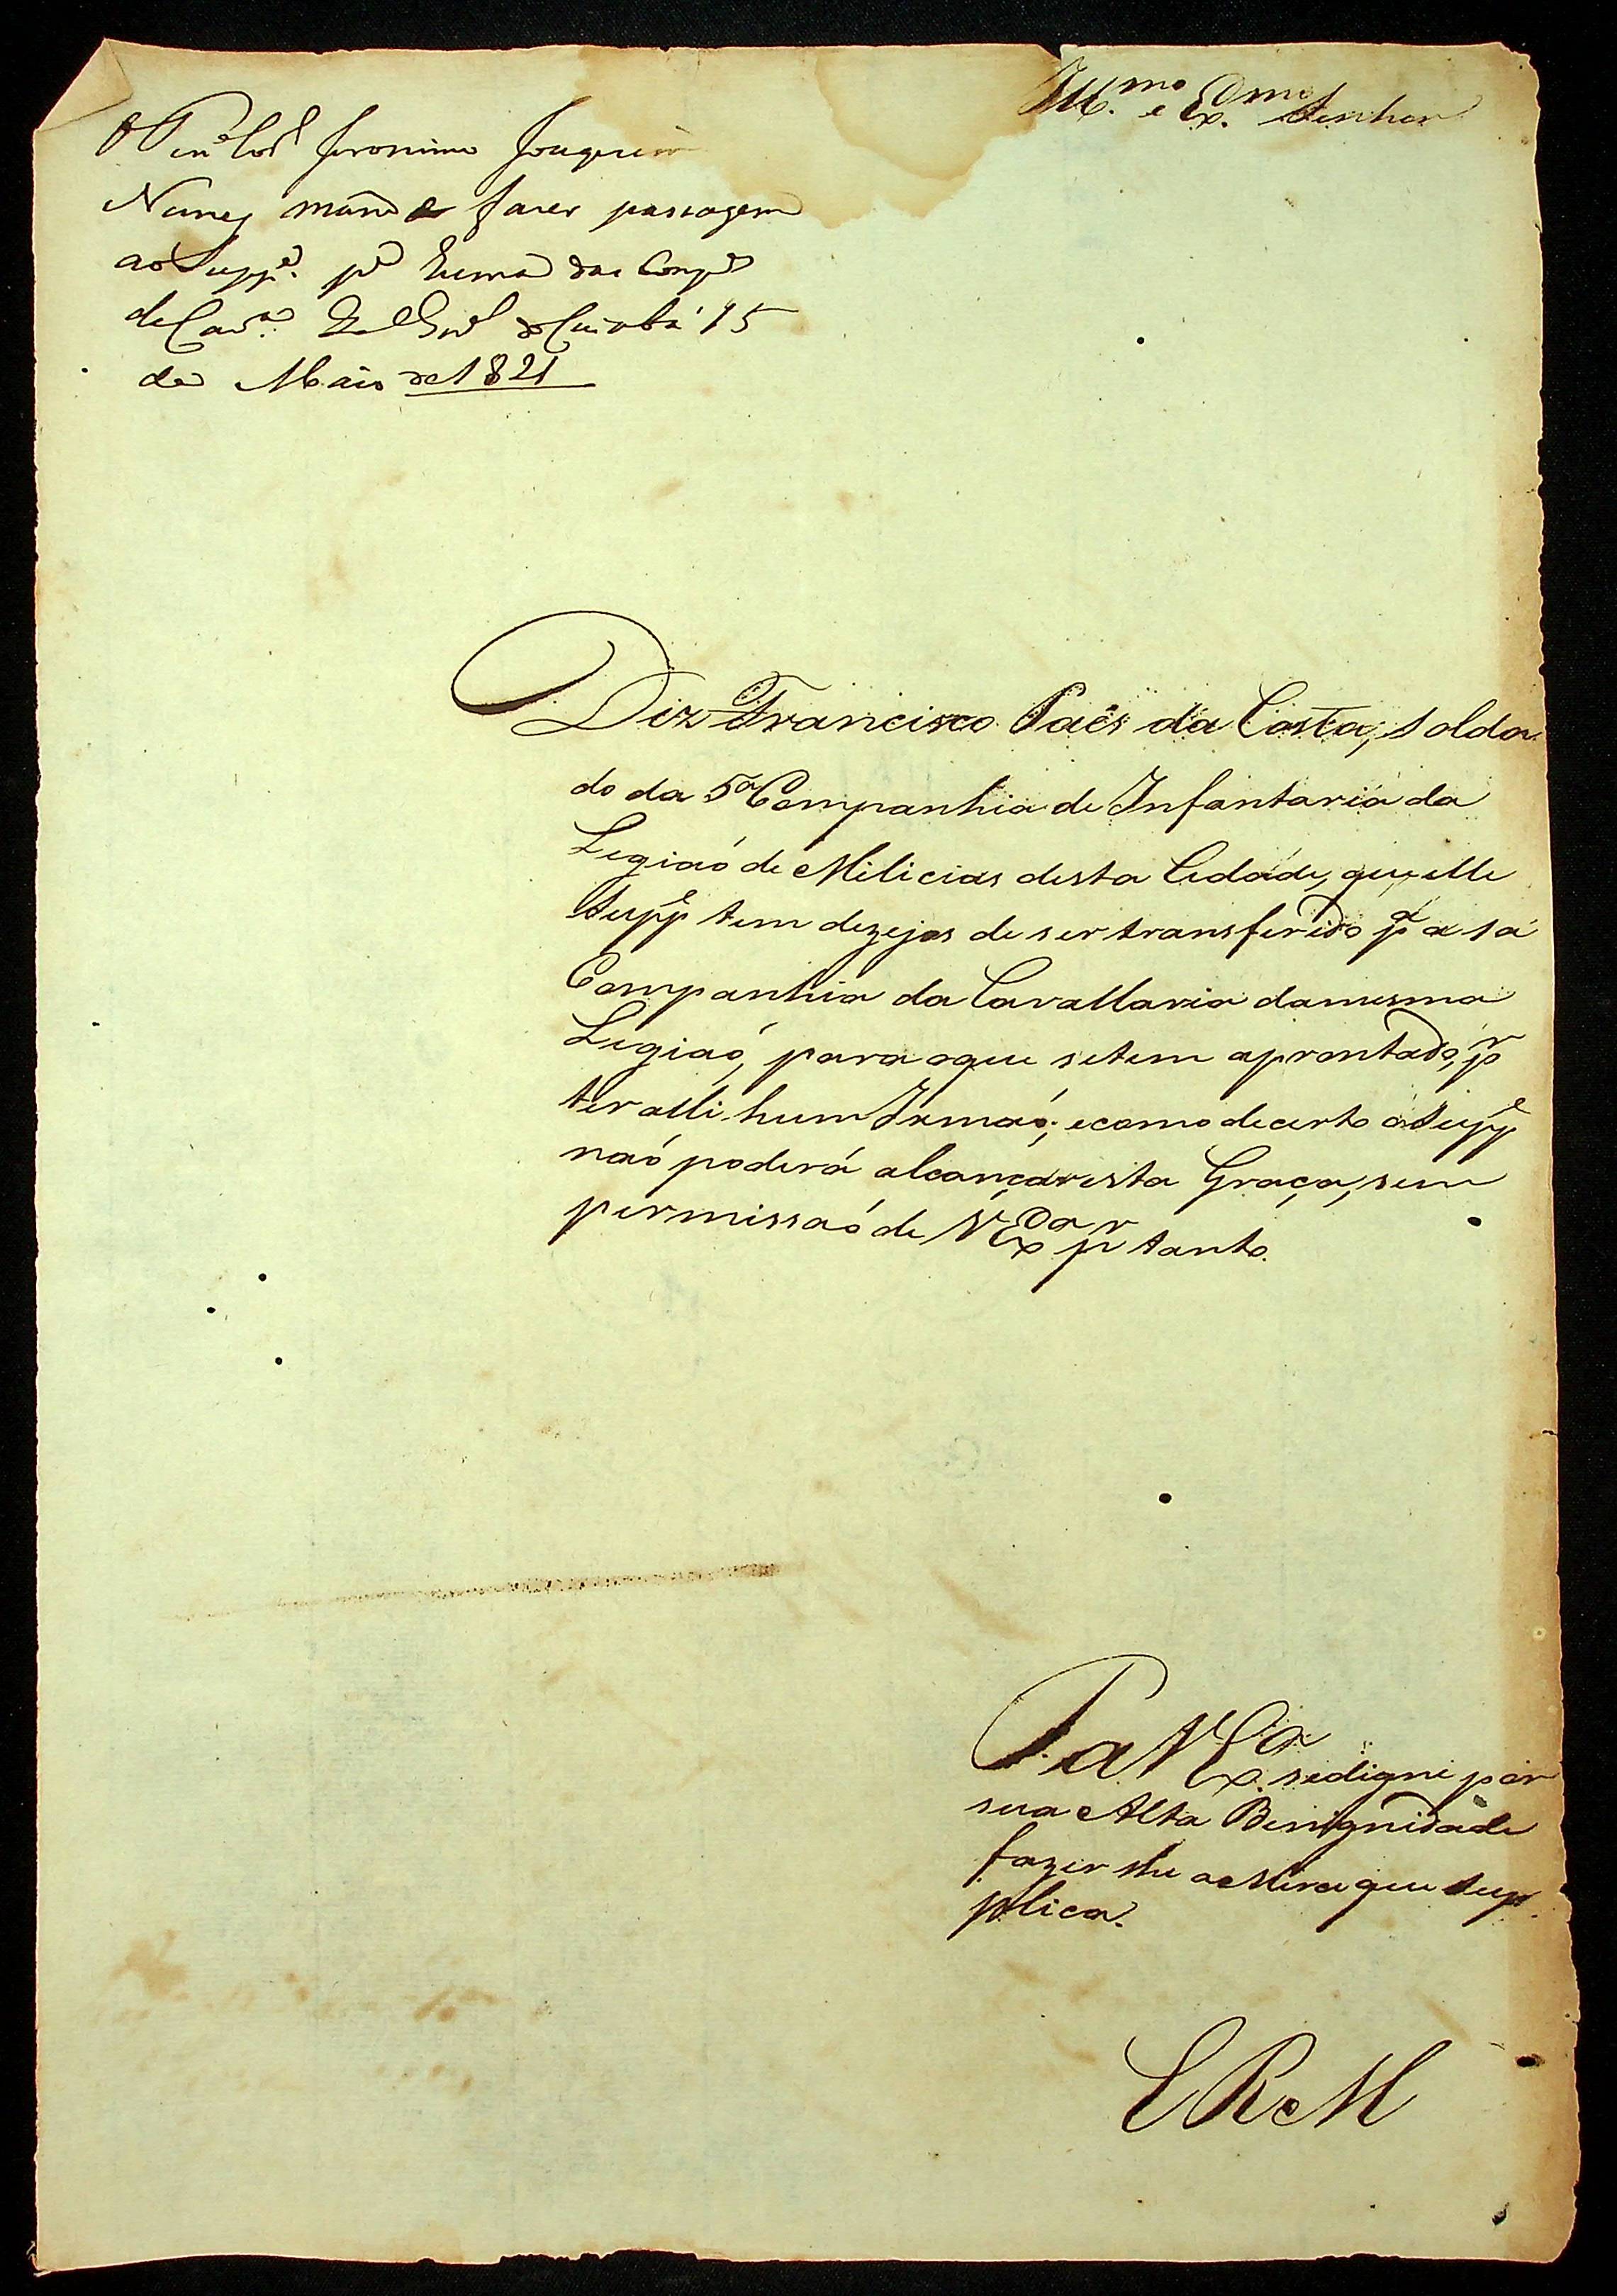 Ill.mo e Ex.mo Senhor
O Ten.e Cor.el Jeronimo Joaquim
Nunes mande fazer passagem
ao Supp.e p.a huma das Comp.as
de Cav.a Q.el G.al do Cuiabá 15
de Maio de 1821
Diz Francisco Paes da Costa, Solda
do da 5a Companhia de Infantaria da
Legiaó de Milicias desta Cidade, que elle
Suppe tem dezejos de ser transferido pa a 1a
Companhia da Cavallaria damesma
Legiaó, para oque setem aprontado, pr
ter alli hum Irmaó; ecomo decerto o Suppe
naó poderá alcançar esta Graça, sem
permissaó de V Exa pr tanto
P. a V Exa. sedigne por
sua Alta Benignidade
fazer lhe a Merce que sup
plica.
E R M